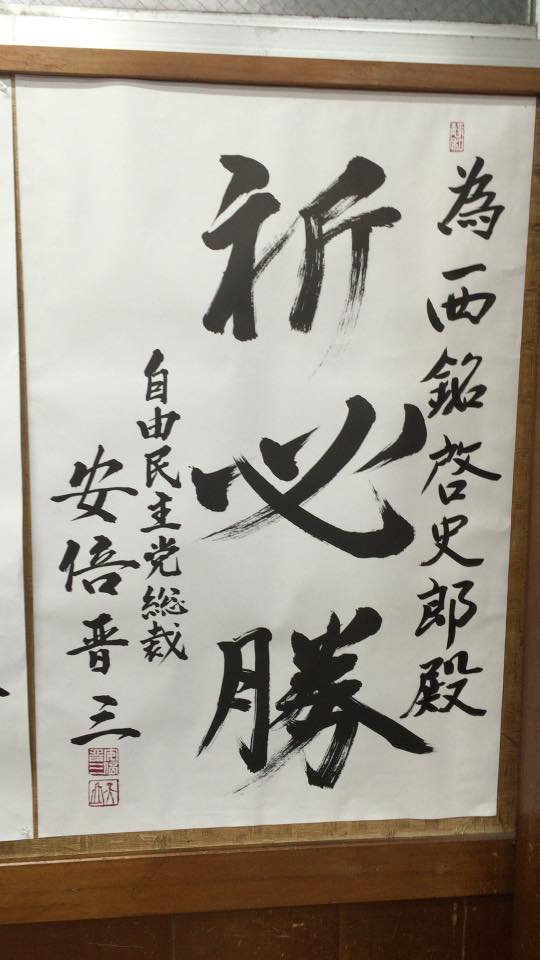 為西銘啓史郎殿
祈必勝
自由民主党総裁
安倍晋三